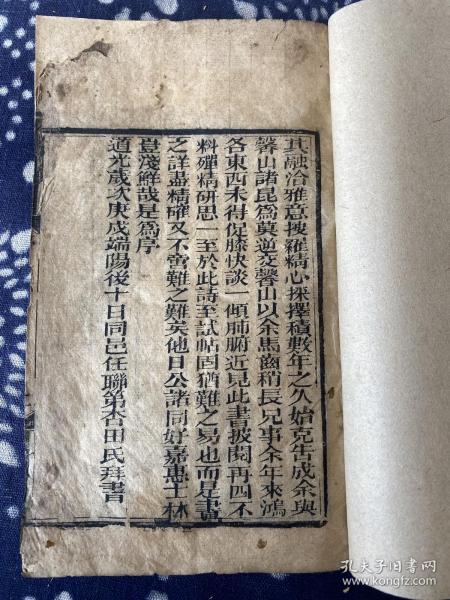 其融洽雅意搜羅精心採擇積數年之久始克告成余與
馨山諸昆為莫逆交馨山以余馬齒稍長兄事余年來鴻
各東西未得促膝快談一傾肺腑近見此書披閱再四不
料殫精研思一至於此詩至試帖固猶難之易也而是書
之詳盡精確又不啻難之難矣他日公諸同好嘉惠士林
豈淺鮮哉是為序
道光歲次庚戌端陽後十日同邑任聯第杏田氏拜書
孔夫子旧书网
www.kongfz.com